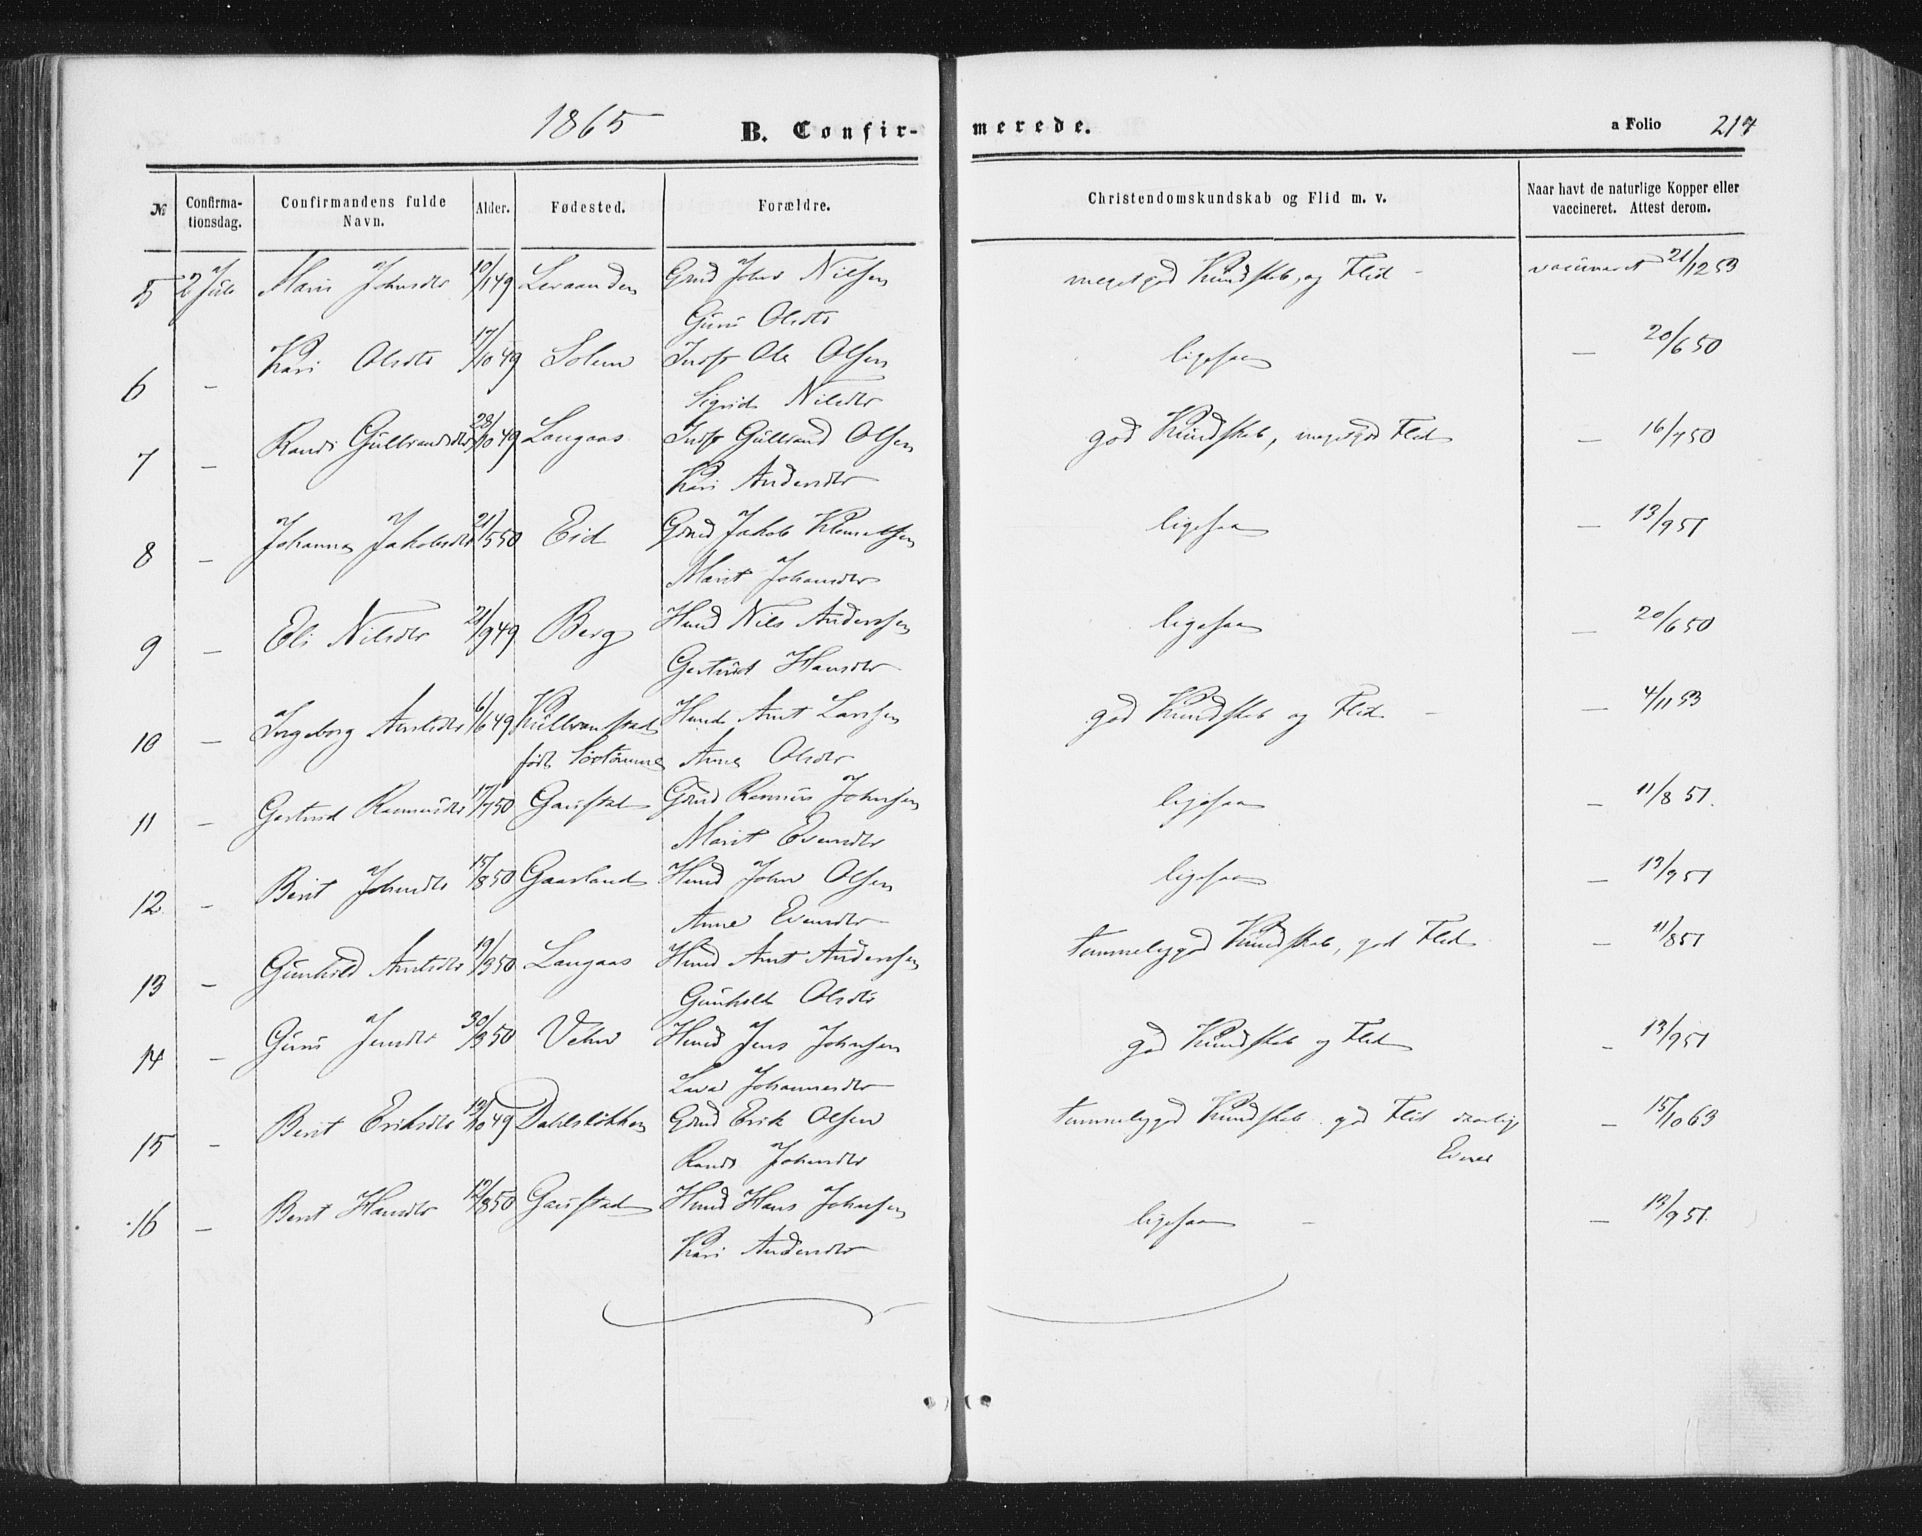 1865 B. Confirmerede. a Folio 217
№ Confirmationsdag. Confirmandens fulde Navn. Alder. Fødested. Forældre. Christendomskundskab og Flid m. v. Naar havt de naturlige Kopper eller vaccineret. Attest derom.
5 2 Juli Marit Johnsdtr 49 Leraanden Gmd John Nilsen meget god Kundskab, og Flid - vaccineret 21/12 53
Guru Olsdtr
6 - Kari Olsdtr 17/10 49 Solem Indst Ole Olsen ligesaa - 20/6 50
Sigrid Nilsdtr
7 - Randi Gulbrandsdtr 28/10 49 Langaas Indst Gulbrand Olsen god Kundskab, meget god Flid - 16/7 50
Kari Andersdtr
8 - Johanna Jakobsdtr 21/5 50 Eid Gmd Jakob Klemetsen ligesaa - 13/9 51
Marit Johansdtr
9 - Eli Nilsdtr 21/9 49 Berg Hmd Nils Anderssen ligesaa - 20/6 50
Gertrud Hansdtr
10 - Ingeborg Arntsdtr 6/6 49 Hmd Arnt Larssen god Kundskab og Flid - - 4/11 53
født Anne Olsdtr
11 - Gertrud Rasmusdtr 17/7 50 Gaustad Gmd Rasmus Johnsen ligesaa - 11/8 51.
Marit Evensdtr
12 - Berit Johnsdtr 15/8 50 Gaarland Hmd John Olsen ligesaa - 13/9 51
Anne Evensdtr
13 - Gunhild Arntsdtr 19/3 50 Langaas Hmd Arnt Anderssen temmelig god Kundskab, god Flid - 11/8 51
Gunhild Olsdtr
14 - Guru Jensdtr 30/3 50 Hmd Jens Johnsen god Kundskab og Flid - 13/9 51
Johannesdtr
15 - Berit Eriksdtr 13/10 49 Dahlsløkken Gmd Erik Olsen temmelig god Kundskab god Flid daarlige - 15/10 63
Randi Johnsdtr Evner
16 - Berit Hansdtr 12/8 50 Gaustad Hmd Hans Johnsen ligesaa - - 13/9 51.
Kari Andersdtr